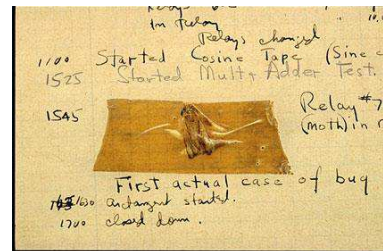 Relays
In Relay
Relays changed
1100 Started Cosine Tape (Sine c
1525 Started Mult + Adder Test.
1545 Relay #7
(moth) in r
First actual case of bug
1630 antangent started.
1700 closed down.